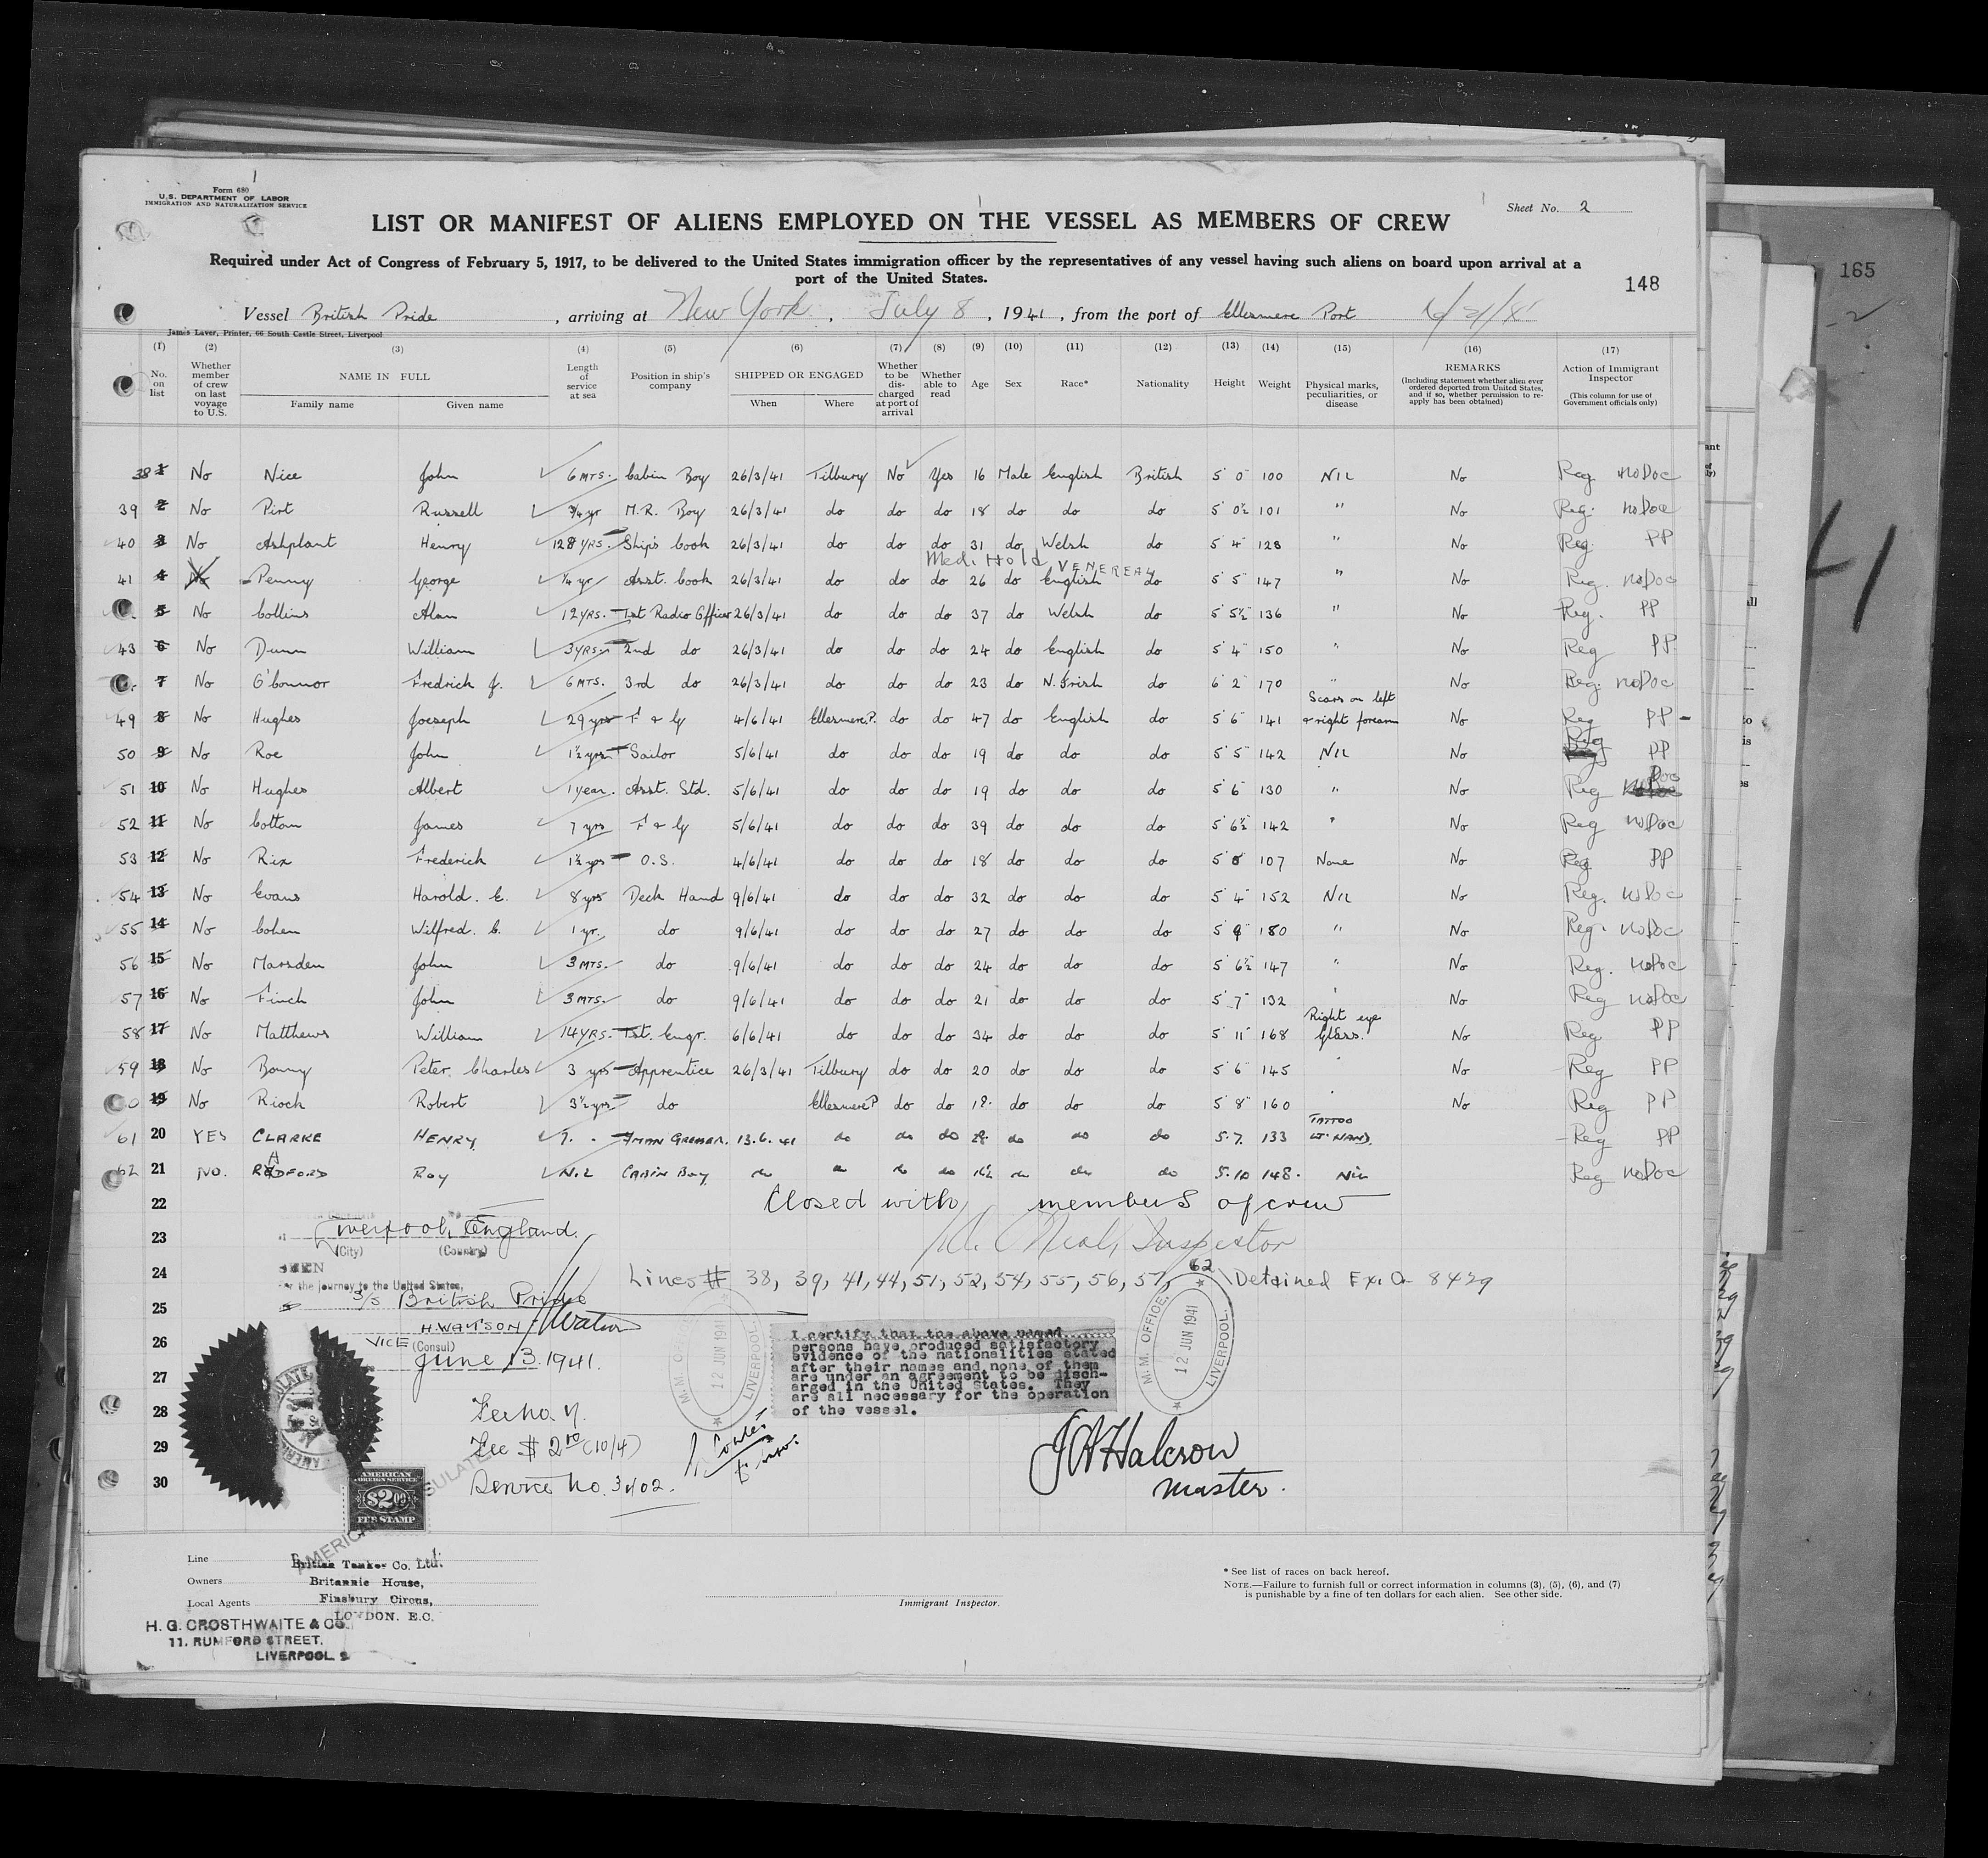 Form 680
U.S. DEPARTMENT OF LABOR
IMMIGRATION AND NATURALIZATION SERVICE
Sheet No. 2
LIST OR MANIFEST OF ALIENS EMPLOYED ON THE VESSEL AS MEMBERS OF CREW
Required under Act of Congress of February 5, 1917, to be delivered to the United States immigration officer by the representatives of any vessel having such aliens on board upon arrival at a
port of the United States.
148
165
Vessel British Pride, arriving at New York, July 8, 1941, from the port of Ellesmere Port
James Laver, Printer, 66 South Castle Street, Liverpool
(1) (2) (3) (4) (5) (6) (7) (8) (9) (10) (11) (12) (13) (14) (15) (16) (17)
No. on list
Whether member of crew on last voyage to U.S.
NAME IN FULL
Family name Given name
Length of service at sea
Position in ship's company
SHIPPED OR ENGAGED
When Where
Whether to be discharged at port of arrival
Whether able to read
Age Sex Race* Nationality Height Weight
Physical marks, peculiarities, or disease
REMARKS
(Including statement whether alien ever ordered deported from United States, and if so, whether permission to re-apply has been obtained)
Action of Immigrant Inspector
(This column for use of Government officials only)
38 1 No Nice John 6 MTS. Cabin Boy 26/3/41 Tilbury No Yes 16 Male English British 5' 0" 100 NIL No Reg noDoc
39 2 No Pirt Russell 3/4 yr M.R. Boy 26/3/41 do do do 18 do do do 5' 0½" 101 " No Reg. noDoc
40 3 No Ashplant Henry 12 8 YRS. Ship's Cook 26/3/41 do do do 31 do Welsh do 5' 4" 128 " No Reg. PP
Med. Hold VENEREAL
41 4 No Penny George ¼ yr Asst. Cook 26/3/41 do do do 26 do English do 5' 5" 147 " No Reg. noDoc
5 No Collins Alan 12 YRS. 1st Radio Officer 26/3/41 do do do 37 do Welsh do 5' 5½" 136 " No Reg. PP
43 6 No Dunn William 3 YRS. 2nd do 26/3/41 do do do 24 do English do 5' 4" 150 " No Reg PP.
7 No O'Connor Fredrick J. 6 MTS. 3rd do 26/3/41 do do do 23 do N. Irish do 6' 2" 170 " No Reg. noDoc
49 8 No Hughes Joeseph 29 yrs F & G 4/6/41 Ellesmere P. do do 47 do English do 5' 6" 141 Scars on left & right forearm No Reg PP
50 9 No Roe John 1½ yrs Sailor 5/6/41 do do do 19 do do do 5' 5" 142 NIL No Reg PP
51 10 No Hughes Albert 1 year. Asst. Std. 5/6/41 do do do 19 do do do 5' 6" 130 " No Reg Doc
52 11 No Cottom James 7 yrs F & G 5/6/41 do do do 39 do do do 5' 6½" 142 " No Reg noDoc
53 12 No Rix Frederick 1½ yrs O.S. 4/6/41 do do do 18 do do do 5' 107 None No Reg PP
54 13 No Evans Harold. E. 8 yrs Deck Hand 9/6/41 do do do 32 do do do 5' 4" 152 NIL No Reg. noDoc
55 14 No Cohen Wilfred. C. 1 yr. do 9/6/41 do do do 27 do do do 5' 9" 180 " No Reg. noDoc
56 15 No Marsden John 3 MTS. do 9/6/41 do do do 24 do do do 5' 6½" 147 " No Reg. noDoc
57 16 No Finch John 3 MTS. do 9/6/41 do do do 21 do do do 5' 7" 132 " No Reg noDoc
58 17 No Matthews William 14 YRS. 1st. Engr. 6/6/41 do do do 34 do do do 5' 11" 168 Right eye Glass. No Reg PP
59 18 No Bonny Peter. Charles 3 yrs Apprentice 26/3/41 Tilbury do do 20 do do do 5' 6" 145 " No Reg PP
19 No Rioch Robert 3½ yrs do Ellesmere P do do 19. do do do 5' 8" 160 " No Reg PP
61 20 YES CLARKE HENRY 7. F'MAN GREASER. 13.6.41 do do do 28. do do do 5.7. 133 TATTOO LT. HAND. Reg PP
62 21 NO. RADFORD Roy NIL CABIN BOY do do do do 16½ do do do 5.10 148. Nil Reg noDoc
22 Closed with members of crew
23 Inspector
24 Lines # 38, 39, 41, 44, 51, 52, 54, 55, 56, 57, 62 Detained Ex. O. 8429
25
26
27
28
29
30
Liverpool, England.
(City) (Country)
SEEN
For the journey to the United States,
S/S British Pride
H. WATSON HWatson
VICE (Consul)
June 13. 1941.
Fee $ 2.00 (10/4)
Service No. 3402.
M.M. OFFICE. 12 JUN 1941 LIVERPOOL.
I certify that the above named
persons have produced satisfactory
evidence of the nationalities stated
after their names and none of them
are under an agreement to be disch-
arged in the United States. They
are all necessary for the operation
of the vessel.
M.M. OFFICE. 12 JUN 1941 LIVERPOOL.
J A Halcrow
Master.
AMERICAN
FOREIGN SERVICE
$2.00
FEE STAMP
Line British Tanker Co. Ltd.
Owners Britannic House,
Local Agents Finsbury Circus,
LONDON. E.C.
H. G. CROSTHWAITE & CO.
11. RUMFORD STREET.
LIVERPOOL 2
Immigrant Inspector.
* See list of races on back hereof.
NOTE.—Failure to furnish full or correct information in columns (3), (5), (6), and (7)
is punishable by a fine of ten dollars for each alien. See other side.